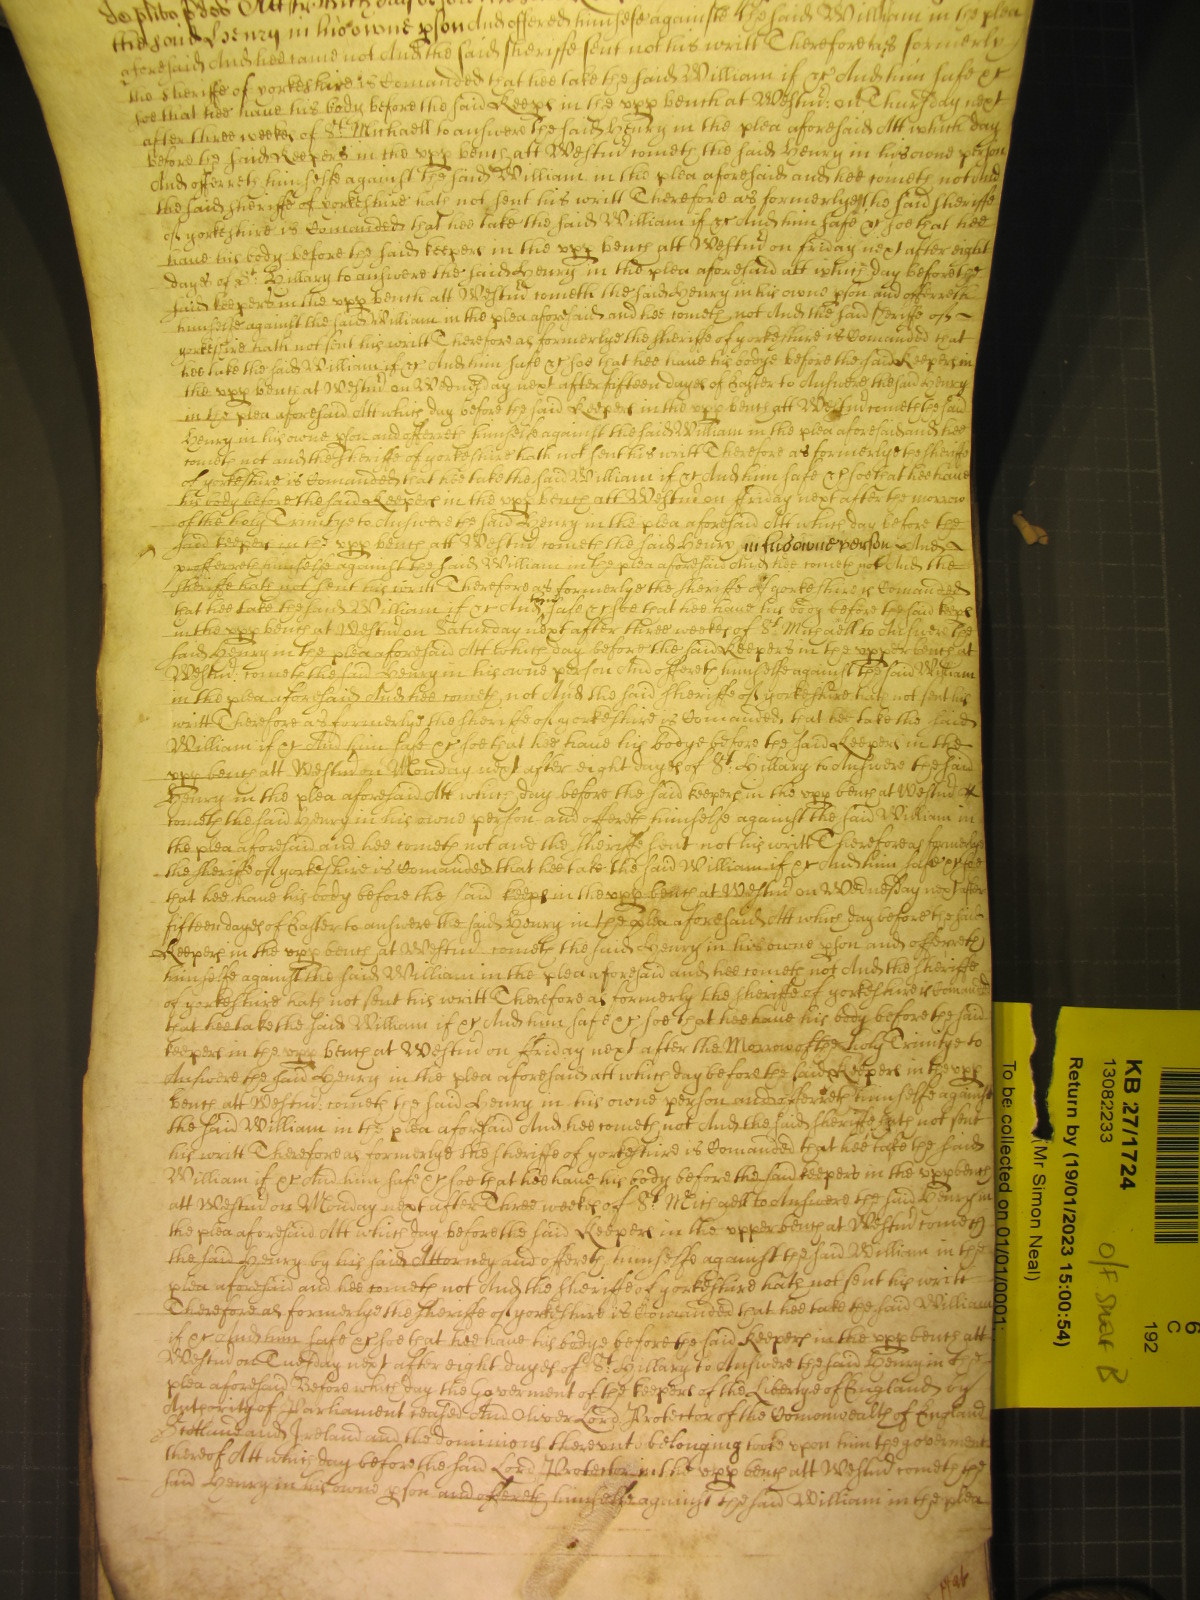 the said Henry in his owne pson And offered himselfe against the said William in the plea
aforesaid And hee came not And the said sheriffe sent not his writt Therefore as formerly
the sheriffe of yorkeshire is Comanded that hee take the said William if &c And him safe &c
soe that hee haue his body before the said Keeps in the vpp bench at Westmr on Thursday next
after three weekes of St Michaell to answere the said Henry in the plea aforesaid Att which day
before the said Keepers in the vpp bench att Westmr cometh the said Henry in his owne pson
And offerreth himselfe against the said William in the plea aforesaid and hee cometh not And
the said sheriffe of yorkeshire hath not sent his writt Therefore as formerlye the said sheriffe
of yorkeshire is Comanded that hee take the said William if &c And him safe &c soe that hee
haue his body before the said keepers in the vpp bench att Westmr on friday next after eight
dayes of St Hillary to answere the said Henry in the plea aforesaid att which day before the
said keepers in the vpp bench att Westmr cometh the said Henry in his owne pson and offerreth
himselfe against the said William in the plea aforesaid and hee cometh not And the said sheriffe of
yorkeshire hath not sent his writt Therefore as formerlye the sheriffe of yorkeshire is Comanded that
hee take the said William if &c And him safe &c soe that hee haue his bodye before the said Keepers in
the vpp bench at Westmr on Wednesday next after fifteen dayes of Easter to Answere the said Henry
in the plea aforesaid Att which day before the said Keepers in the vpp bench att Westmr cometh the said
Henry in his owne pson and offereth himselfe against the said William in the plea aforesaid and hee
cometh not and the sheriffe of yorkeshire hath not sent his writt Therefore as formerlye the sheriffe
of yorkeshire is Comanded that hee take the said William if &c And him safe &c soe that hee haue
his body before the said Keepers in the vpp bench att Westmr on friday next after the morrow
of the holy Trinitye to Answere the said Henry in the plea aforesaid Att which day before the
said keepers in the vpp bench att Westmr cometh the said Henry in his owne person And
profferreth himselfe against the said William in the plea aforesaid And hee cometh not And the
sheriffe hath not sent his writt Therefore as formerlye the sheriffe of yorkeshire is Comanded
that hee take the said William if &c And him safe &c soe that hee haue his body before the said keeps
in the vpp bench at Westmr on Saturday next after three weekes of St Michaell to Answere the
said Henry in the plea aforesaid Att which day before the said Keepers in the vpper bench at
Westmr cometh the said Henry in his owne person And offereth himselfe against the said William
in the plea aforesaid And hee cometh not And the said sheriffe of yorkeshire hath not sent his
writt Therefore as formerlye the sheriffe of yorkeshire is Comanded that hee take the said
William if &c And him safe &c soe that hee haue his bodye before the said Keepers in the
vpp bench att Westmr on Monday next after eight dayes of St Hillary to Answere the said
Henry in the plea aforesaid Att which day before the said keepers in the vpp bench at Westmr
cometh the said Henry in his owne person and offereth himselfe against the said William in
the plea aforesaid and hee cometh not and the sheriffe sent not his writt Therefore as formerlye
the sheriffe of yorkeshire is Comanded that hee take the said William if &c And him safe &c soe
that hee haue his body before the said keeps in the vpp bench at Westmr on Wednesday next after
fifteen dayes of Easter to answere the said Henry in the plea aforesaid Att which day before the said
Keepers in the vpp bench at Westmr cometh the said Henry in his owne pson and offerreth
himselfe against the said William in the plea aforesaid and hee cometh not And the sheriffe
of yorkeshire hath not sent his writt Therefore as formerly the sheriffe of yorkeshire is Comanded
that hee take the said William if &c And him safe &c soe that hee haue his body before the said
keepers in the vpp bench at Westmr on friday next after the Morrow of the holy Trinitye to
Answere the said Henry in the plea aforesaid att which day before the said Keepers in the vpp
bench att Westmr cometh the said Henry in his owne person and offerreth himselfe against
the said William in the plea aforesaid And hee cometh not And the said sheriffe hath not sent
his writt Therefore as formerlye the sheriffe of yorkeshire is Comanded that hee take the said
William if &c And him safe &c soe that hee haue his body before the said keepers in the vpp bench
att Westmr on Monday next after Three weekes of St Michaell to Answere the said Henry in
the plea aforesaid Att which day before the said Keepers in the vpper bench at Westmr cometh
the said Henry by his said Attorney and offereth himselfe against the said William in the
plea aforesaid and hee cometh not And the sheriffe of yorkeshire hath not sent his writt
Therefore as formerlye the sheriffe of yorkeshire is Comanded that hee take the said William
if &c And him safe &c soe that hee haue his bodye before the said Keepers in the vpp bench att
Westmr on Tuesday next after eight dayes of St Hillary to Answere the said Henry in the
plea aforesaid Before which day the Goverment of the keepers of the Libertye of England by
Authority of Parliament ceased And Oliver Lord Protector of the Comonwealth of England
Scotland and Ireland and the dominions therevnto belonging tooke vpon him the goverment
thereof Att which day before the said Lord Protector in the vpp bench att Westmr cometh the
said Henry in his owne pson and offereth himselfe against the said William in the plea
KB 27/1724
13082233
Return by (19/01/2023 15:00:54)
(Mr Simon Neal)
To be collected on 01/01/0001
O/F Shelf B
6
C
192